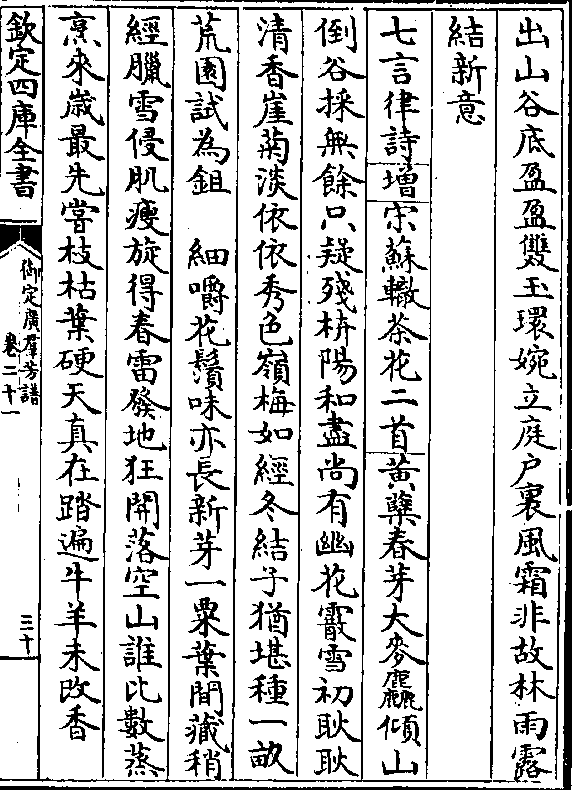 出山谷底盈盈雙玉環婉立庭戶裏風霜非故林雨露
結新意
七言律詩增宋蘇轍茶花二首黃蘗春芽大麥麤傾山
倒谷採無餘只疑殘枿陽和盡尚有幽花霰雪初耿耿
清香崖菊淡依依秀色嶺梅如經冬結子猶堪種一畝
荒園試為鉏 細嚼花鬚味亦長新芽一粟葉間藏稍
經臘雪侵肌瘦旋得春雷發地狂開落空山誰比數蒸
烹來歲最先嘗枝枯葉硬天真在踏遍牛羊未改香
欽定四庫全書
御定廣羣芳譜
卷二十一
三十